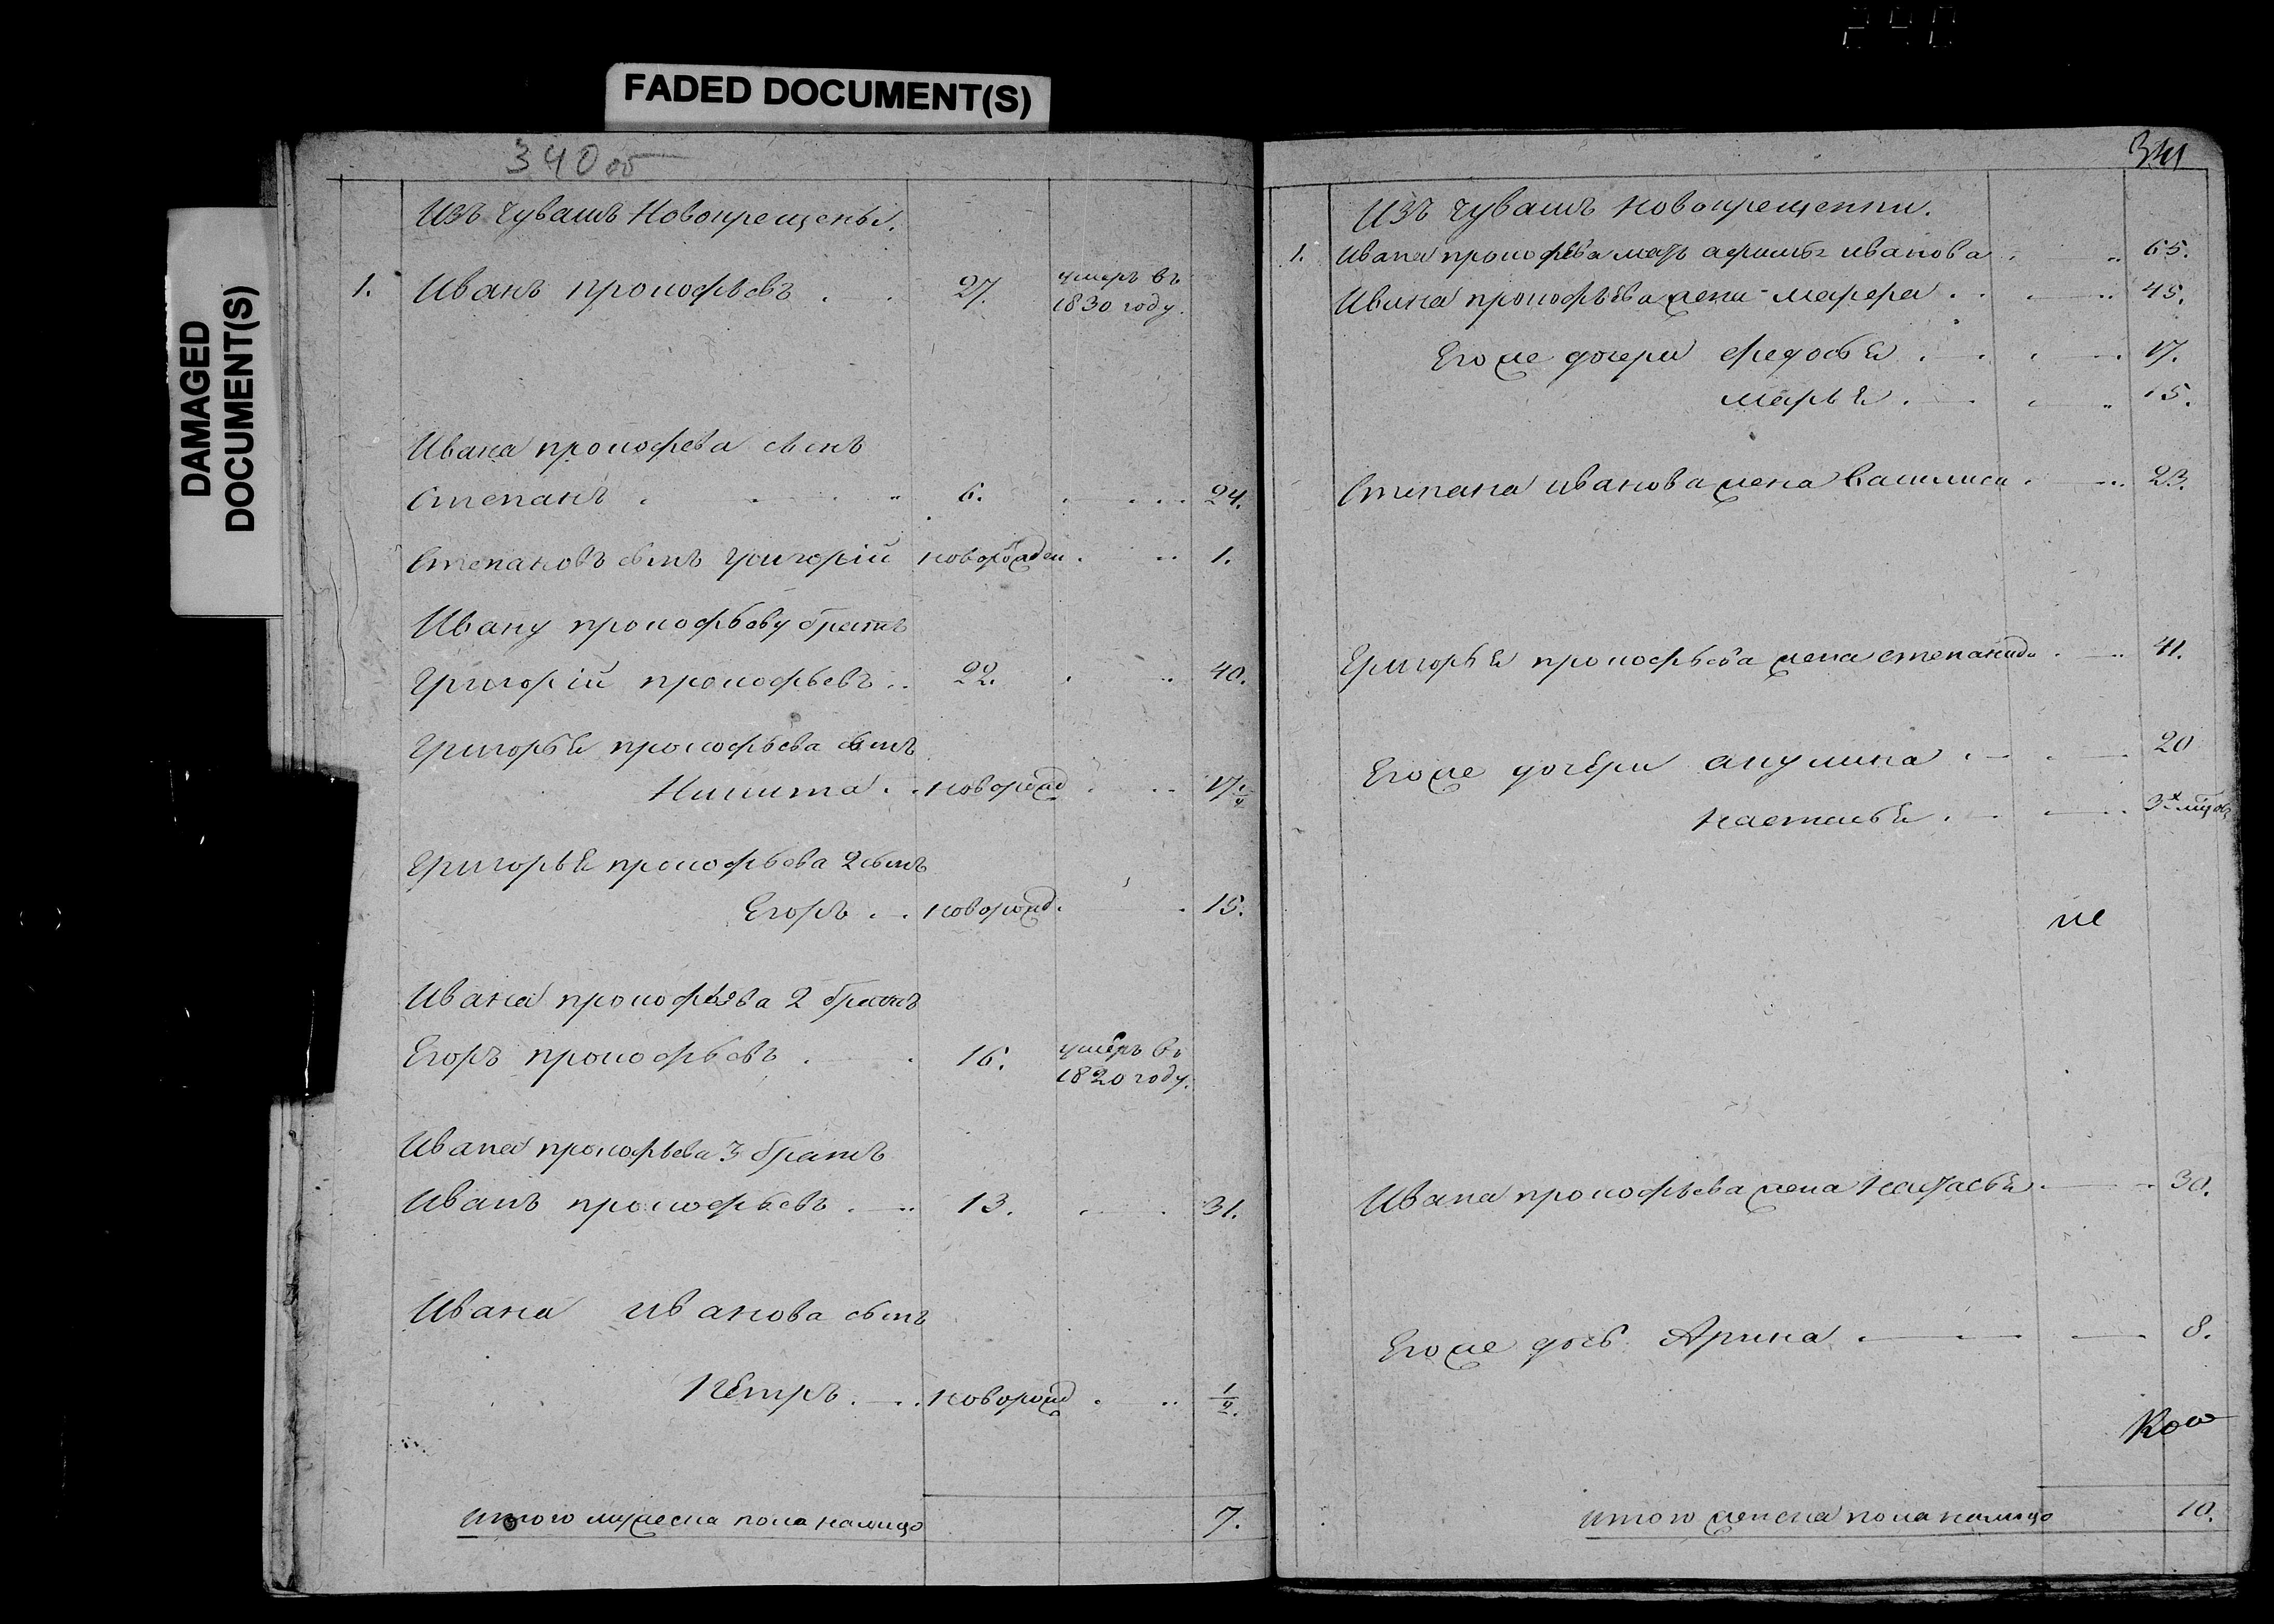 FADED DOCUMENT(S)
DAMAGED
DOCUMENT(S)
340 об
Изъ Чувашъ Новокрещены.
1. Иванъ прокофьевъ 27. умеръ въ
1830 году.
Ивана прокофева сынъ
Степанъ 6. 24.
Степановъ сынъ григорій новорожден 1.
Ивану прокофьеву братъ
Григорій прокофьевъ 22. 40.
Григорья прокофьева сынъ
Никита новорожд 17 1/2
Григорья прокофьева 2 сынъ
Егоръ новорожд. 15.
Ивана прокофьева 2 братъ
Егоръ прокофьевъ 16. умеръ въ
1820 году.
Ивана прокофьева 3 братъ
Иванъ прокофьевъ 13. 31.
Ивана иванова сынъ
Петръ новорожд 1/2.
итого мужеска пола налицо 7.
341
Изъ чувашъ новокрещенни.
1. Ивана прокофьева мать иванова 65.
Ивана прокофьева жена марфа 45.
Егоже дочери федосья 17.
марья 15.
Степана иванова жена Василиса 23.
Григорья прокофьева жена степанида 41.
Егоже дочери акулина 20
настасья 3х мцов
не
Ивана прокофьева жена Настасья 30.
Егоже дочь Арина 8.
итого женска пола налицо 10.